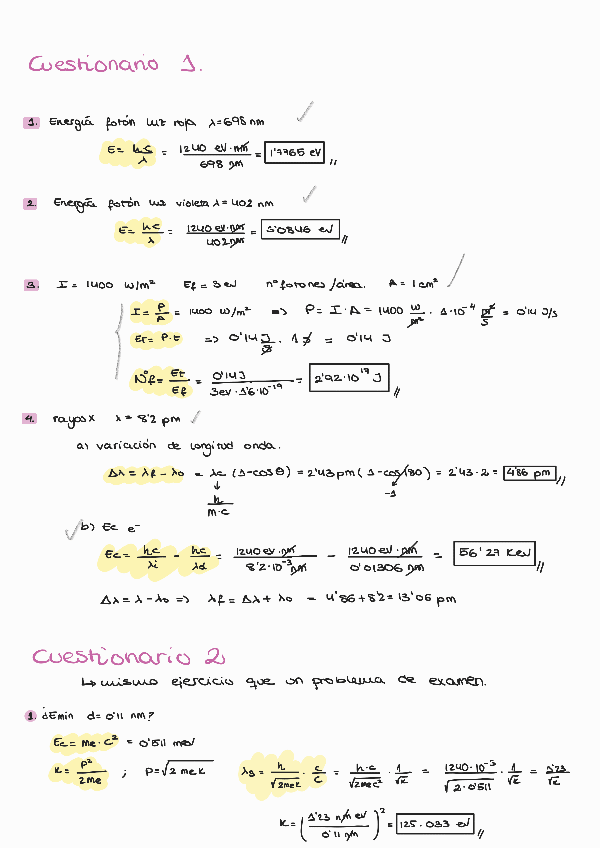 Cuestionario 1.
1. Energía fotón luz roja λ=698 nm
E = hc/λ = 1240 eV·nm/698 nm = 1'7765 eV //
2. Energía fotón luz violeta λ = 402 nm
E = hc/λ = 1240 eV·nm/402 nm = 3'0846 eV //
3. I = 1400 W/m² Ef = 3 eV nº fotones/área. A = 1 cm²
I = P/A = 1400 W/m² => P = I·A = 1400 W/m² · 1·10⁻⁴ m²/s = 0'14 J/s
Et = P·t => 0'14 J/s · 1 s = 0'14 J
Nºf = Et/Ef = 0'14 J/3eV·1'6·10⁻¹⁹ = 2'92·10¹⁷ J //
4. rayos X λ = 8'2 pm
a) variación de longitud onda.
Δλ = λf - λ0 = λc (1-cosθ) = 2'43 pm (1-cos180) = 2'43·2 = 4'86 pm //
↓ h/m·c -1
b) Ec e⁻
Ec = hc/λi - hc/λd = 1240 eV·nm/8'2·10⁻³ nm - 1240 eV·nm/0'01306 nm = 56'27 KeV //
Δλ = λ - λ0 => λf = Δλ + λ0 = 4'86 + 8'2 = 13'06 pm
Cuestionario 2
↳ mismo ejercicio que un problema de examen.
1. ¿Emin d = 0'11 nm?
Ec = me·c² = 0'511 meV
K = p²/2me ; p = √2meK λB = h/√2meK · c/c = h·c/√2mec² · 1/√K = 1240·10⁻³/√2·0'511 · 1/√K = 1'23/√K
K = (1'23 nm eV/0'11 nm)² = 125.033 eV //